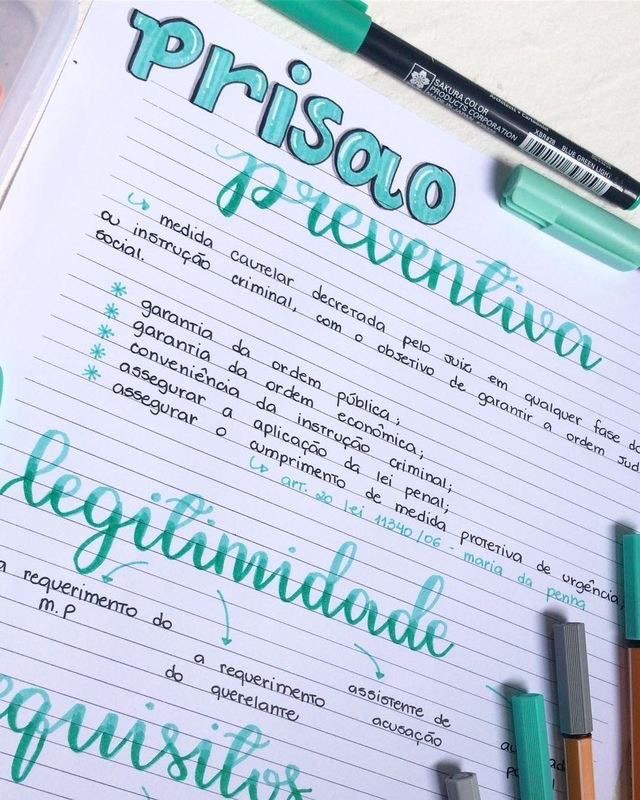 prisão
preventiva
↳ medida cautelar decretada pelo juiz em qualquer fase do
ou instrução criminal, com o objetivo de garantir a ordem jud
social.
* garantia da ordem pública;
* garantia da ordem econômica;
* conveniência da instrução criminal;
* assegurar a aplicação da lei penal;
* assegurar o cumprimento de medida protetiva de urgência;
↳ art. 20 lei 11340/06 - maria da penha
legitimidade
a requerimento do
M.P
a requerimento
do querelante
assistente de
acusação
equisitos
SAKURA COLOR
PRODUCTS CORPORATION
XBR#28 BLUE GREEN LIGHT